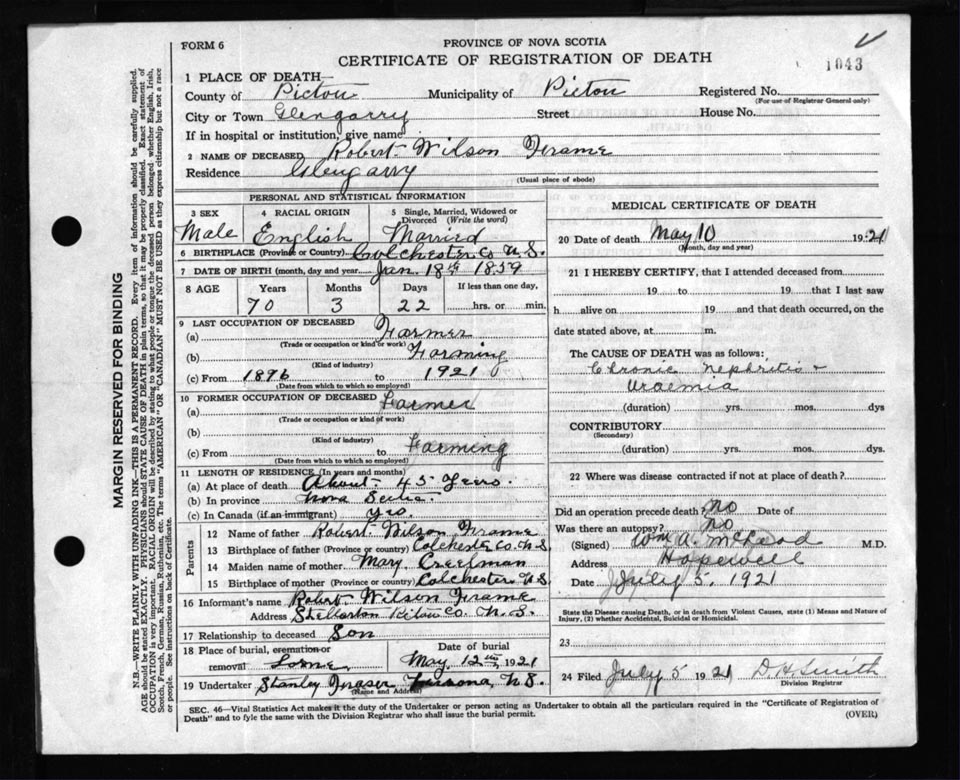 FORM 6
PROVINCE OF NOVA SCOTIA
CERTIFICATE OF REGISTRATION OF DEATH
1043
1 PLACE OF DEATH—
County of Pictou Municipality of Pictou Registered No.
(For use of Registrar General only)
City or Town Glengarry Street House No.
If in hospital or institution, give name
2 NAME OF DECEASED Robert Wilson Frame
Residence Glengarry
(Usual place of abode)
PERSONAL AND STATISTICAL INFORMATION
3 SEX 4 RACIAL ORIGIN 5 Single, Married, Widowed or Divorced (Write the word)
Male English Married
6 BIRTHPLACE (Province or Country) Colchester Co N.S.
7 DATE OF BIRTH (month, day and year) Jan. 18th 1859
8 AGE Years Months Days If less than one day,
70 3 22 hrs. or min.
9 LAST OCCUPATION OF DECEASED
(a) Farmer
(Trade or occupation or kind of work)
(b) Farming
(Kind of industry)
(c) From 1896 to 1921
(Date from which to which so employed)
10 FORMER OCCUPATION OF DECEASED
(a) Farmer
(Trade or occupation or kind of work)
(b)
(Kind of industry)
(c) From to Farming
(Date from which to which so employed)
11 LENGTH OF RESIDENCE (In years and months)
(a) At place of death About 45 Years.
(b) In province Nova Scotia.
(c) In Canada (if an immigrant) yrs.
Parents
12 Name of father Robert Wilson Frame
13 Birthplace of father (Province or country) Colchester Co. N.S.
14 Maiden name of mother Mary Creelman
15 Birthplace of mother (Province or country) Colchester N.S.
16 Informant's name Robert Wilson Frame
Address Co. N.S.
17 Relationship to deceased Son
18 Place of burial, cremation or removal Lorne Date of burial May 12 1921
19 Undertaker Stanley Fraser N.S.
(Name and Address)
MEDICAL CERTIFICATE OF DEATH
20 Date of death May 10 1921
(Month, day and year)
21 I HEREBY CERTIFY, that I attended deceased from
19 to 19 that I last saw
h alive on 19 and that death occurred, on the
date stated above, at m.
The CAUSE OF DEATH was as follows:
Chronic Nephritis +
Uraemia
(duration) yrs. mos. dys
CONTRIBUTORY
(Secondary)
(duration) yrs. mos. dys.
22 Where was disease contracted if not at place of death?
Did an operation precede death? No Date of
Was there an autopsy? No
(Signed) Wm A. McLeod M.D.
Address Hopewell
Date July 5, 1921
State the Disease causing Death, or in death from Violent Causes, state (1) Means and Nature of
Injury, (2) whether Accidental, Suicidal or Homicidal.
23
24 Filed July 5 1921 D H Smith
Division Registrar
SEC. 46—Vital Statistics Act makes it the duty of the Undertaker or person acting as Undertaker to obtain all the particulars required in the "Certificate of Registration of
Death" and to fyle the same with the Division Registrar who shall issue the burial permit.
(OVER)
MARGIN RESERVED FOR BINDING
N.B.—WRITE PLAINLY WITH UNFADING INK—THIS IS A PERMANENT RECORD. Every item of information should be carefully supplied.
AGE should be stated EXACTLY. PHYSICIANS should STATE CAUSE OF DEATH in plain terms, so that it may be properly classified. Exact statement of
OCCUPATION is very important. RACIAL ORIGIN will be described by stating to what people or tongue the deceased person belonged whether English, Irish,
Scotch, French, German, Russian, Ruthenian, etc. The terms "AMERICAN" OR "CANADIAN" MUST NOT BE USED as they express citizenship but not a race
or people. See instructions on back of Certificate.